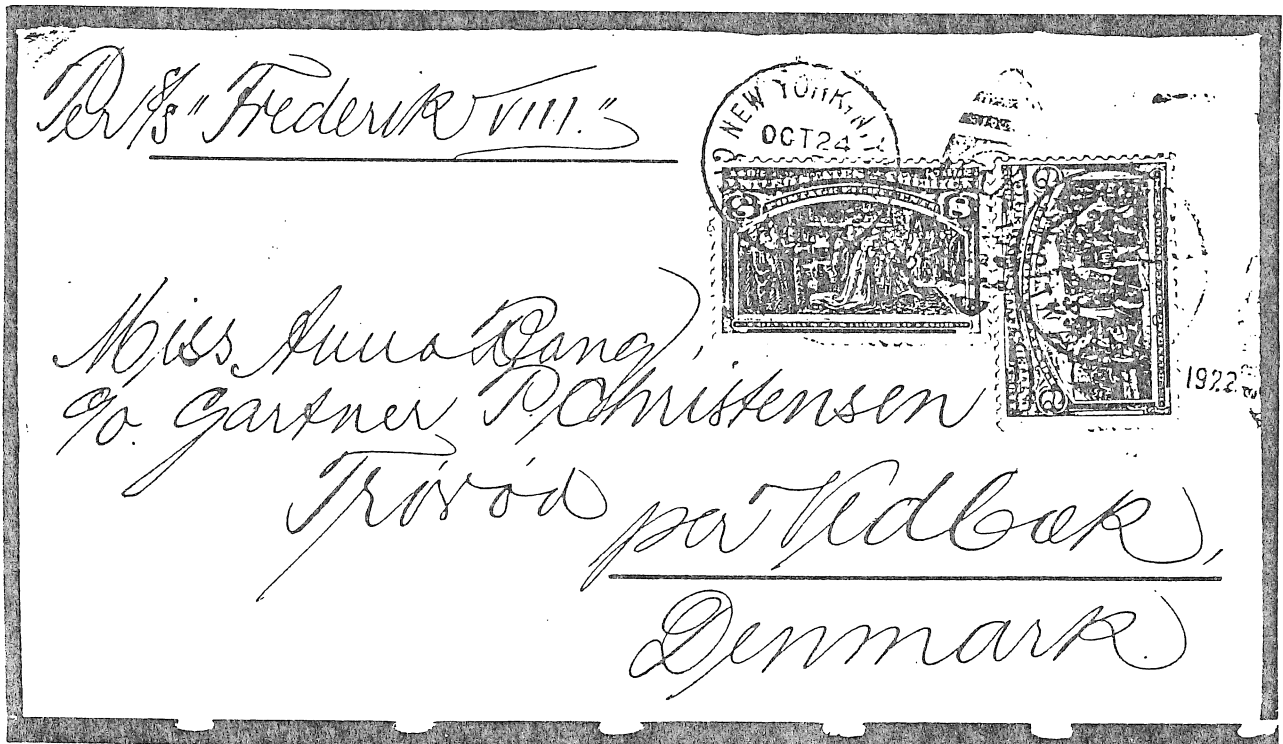 Per s/s "Frederik VIII."
NEW YORK, N.Y.
OCT 24
1922
Miss Anna Bang,
c/o. Gartner P. Christensen
Trørød
per Vedbæk,
Denmark.